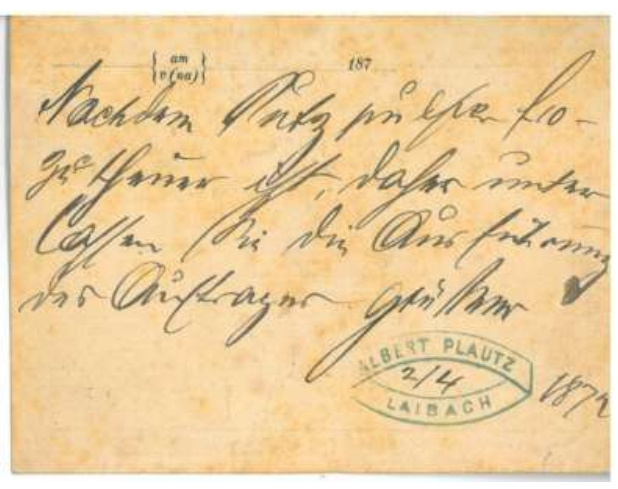 am
v (na)
187
Nachdem
zu theuer ist, daher unter
lassen Sie die Ausführung
des Auftrages grüßer
ALBERT PLAUTZ
2/4
LAIBACH
187